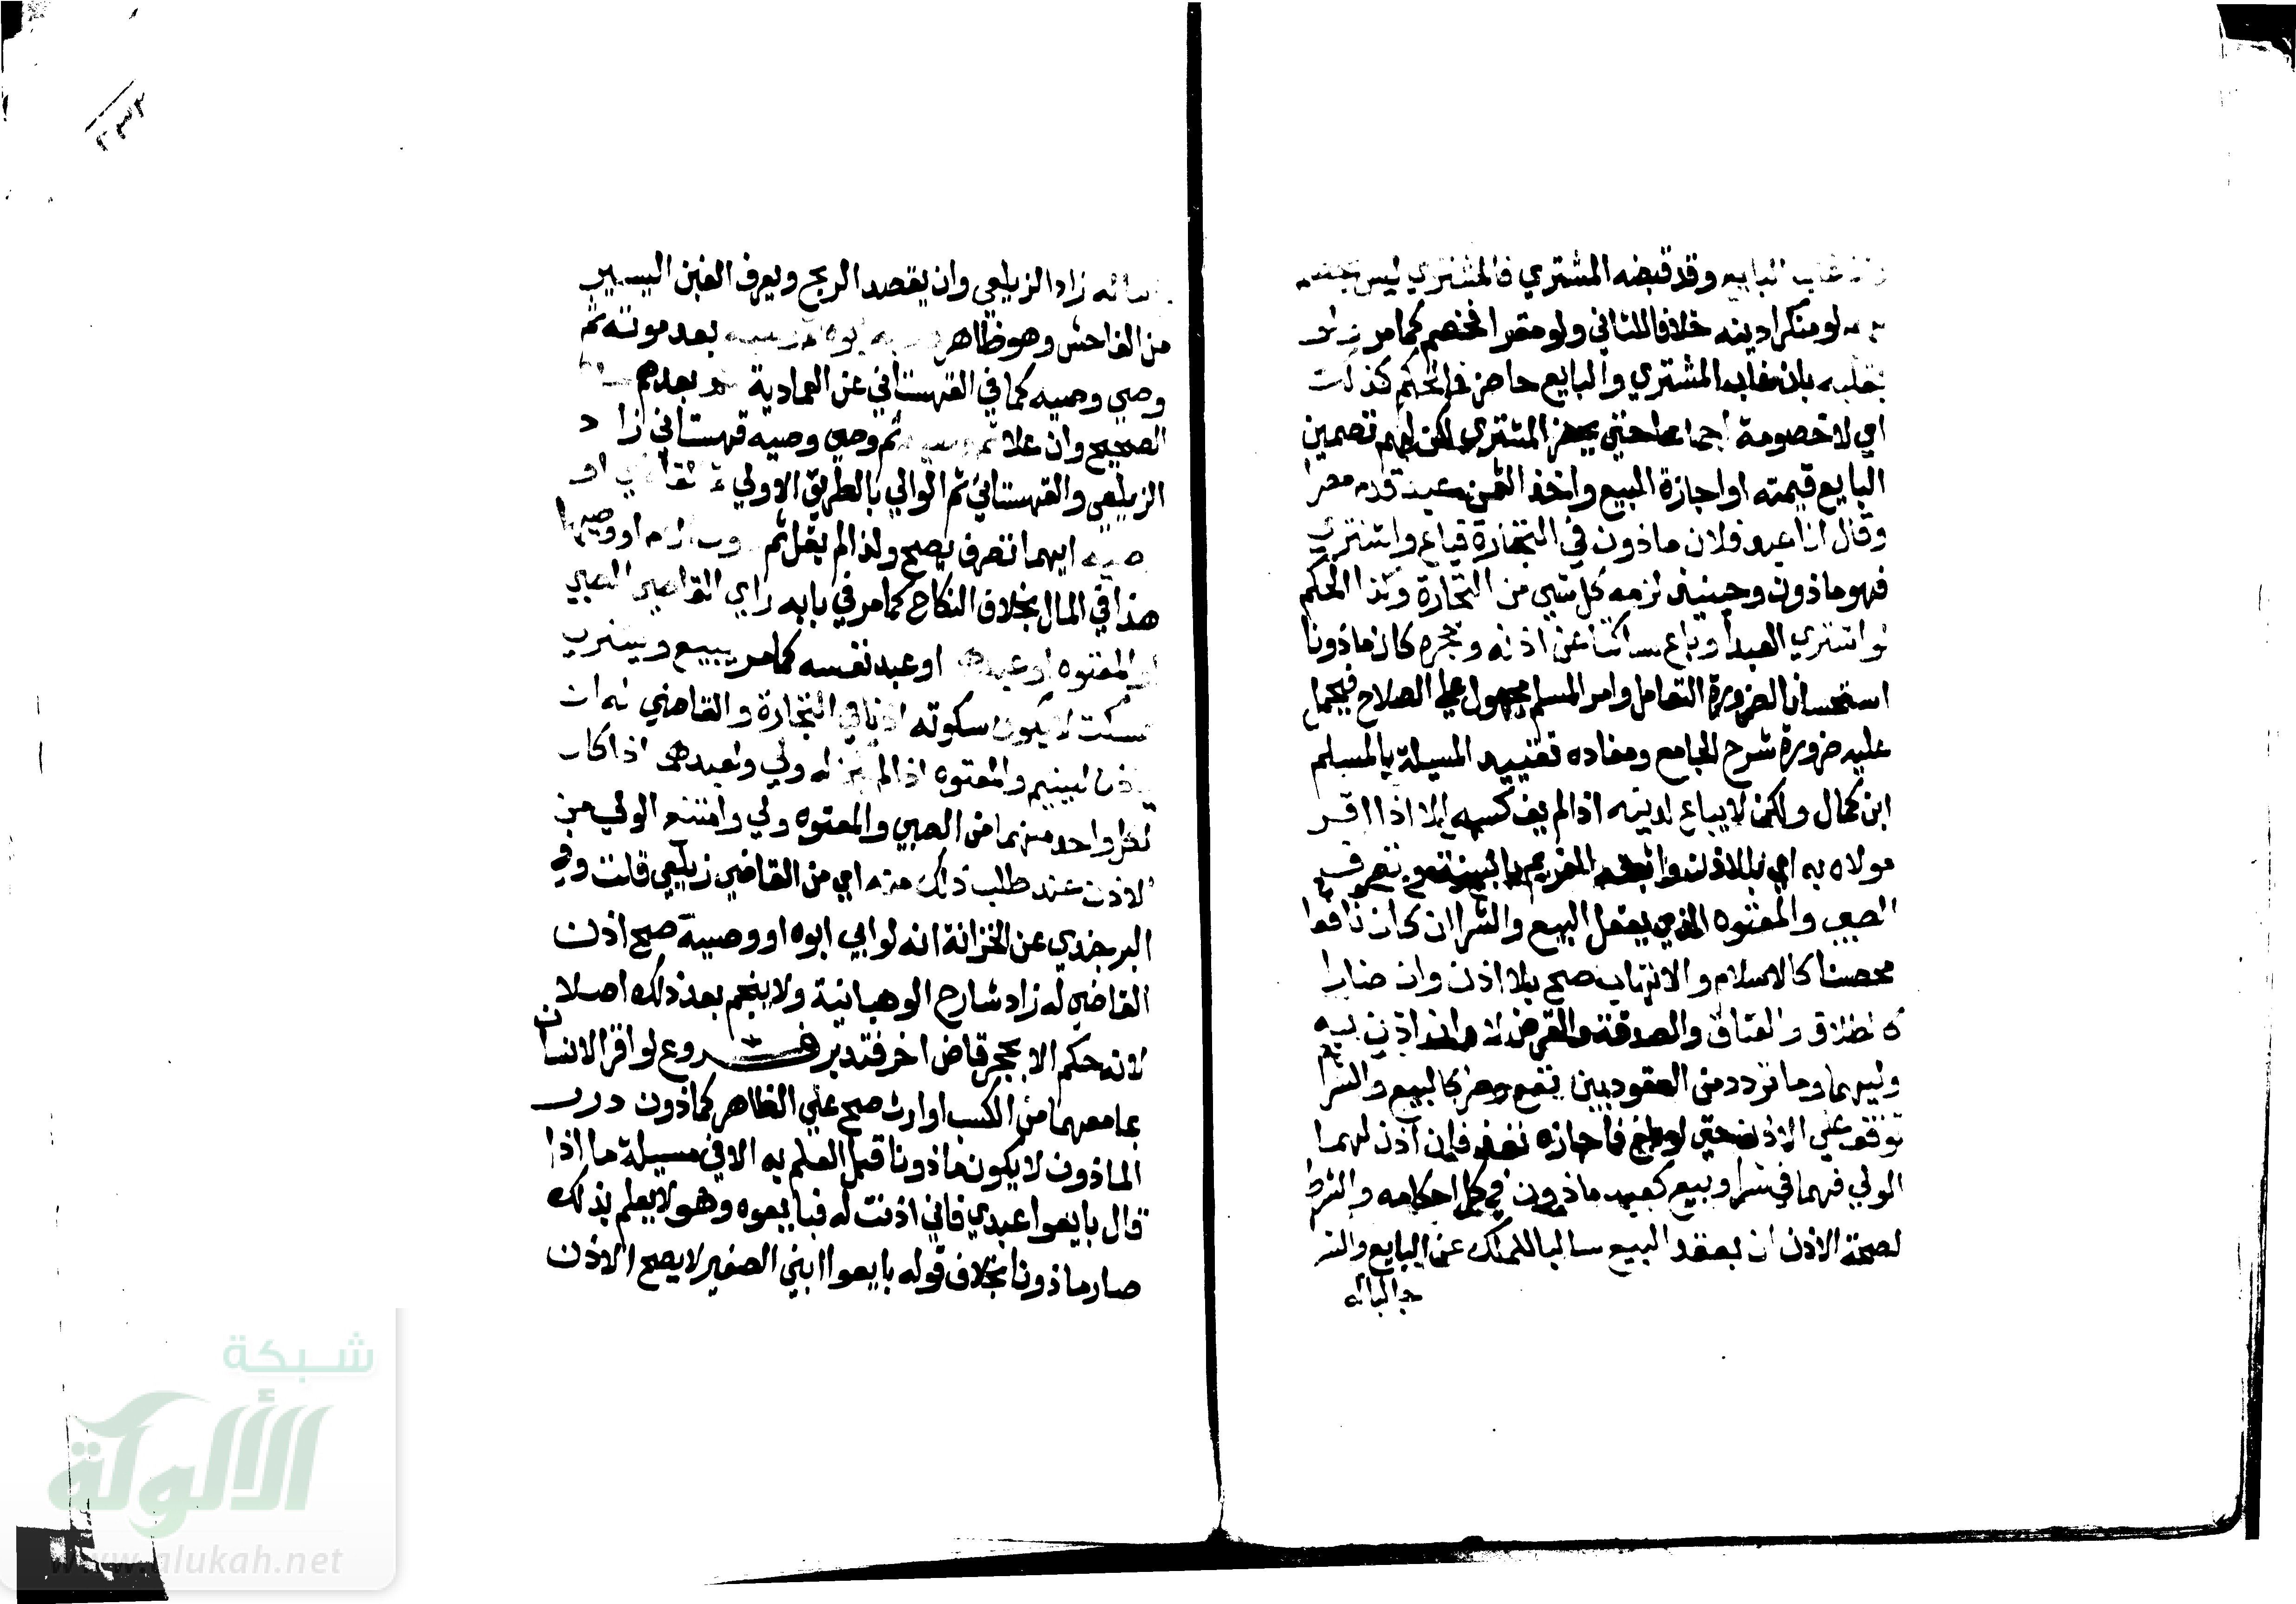 غاب البايع وقد قبضه المشتري فالمشتري ليس بخصم
لو منكرا دينه خلافا للثاني ولو مقرا فخصم كما مر
بقلبه بان غاب المشتري والبايع حاضر فالحكم كذلك
اي لا خصومة اجماعا حتي يحضر المشتري لكن لهم تضمين
البايع قيمته او اجازة البيع واخذ الثمن عبد قدم مصرا
وقال انا عبد فلان ماذون في التجارة فباع واشتري
فهو ماذون وحينئذ لزمه كل شي من التجارة وكذا الحكم
لو اشتري العبد او باع ساكتا عن اذنه وحجره كان ماذونا
استحسانا لضرورة التعامل وامر المسلم محمول علي الصلاح فيحمل
عليه ضرورة شرح الجامع ومفاده تقييد المسيلة بالمسلم
ابن كمال ولكن لا يباع لدينه اذا لم يف كسبه الا اذا اقر
مولاه به اي بالاذن او اثبته الغريم بالبينة وتصرف
الصبي والمعتوه الذي يعقل البيع والشرا ان كان نافعا
محضنا كالاسلام والانتهاب صح بلا اذن وان ضارا
كالطلاق والعتاق والصدقة والقرض لا وان اذن به
وليهما وما تردد من العقود بين نفع وضر كالبيع والشرا
توقف علي الاذن حتي لو بلغ فاجازه نفذ فان اذن لهما
الولي فهما في شرا وبيع كعبد ماذون في كل احكامه والشرط
لصحة الاذن ان يعقلا البيع سالبا للملك عن البايع والشر
جالباله
زاد الزيلعي وان يقصد الربح ويعرف الغبن اليسير
من الفاحش وهو ظاهر ابوه بعد موته ثم
وصي وصيه كما في القهستاني عن العمادية بعدهم
الصحيح وان علا ثم وصيه ثم وصي وصيه قهستاني زاد
الزيلعي والقهستاني ثم الوالي بالطريق الاولي
ايهما تصرف يصح ولذا لم يقل ثم او وصيها
هذا في المال بخلاف النكاح كما مر في بابه راي القاضي الصبي
او المعتوه او عبدهما او عبد نفسه كما مر يبيع ويشتري
فسكت لا يكون سكوته اذنا في التجارة والقاضي له ان
ياذن لليتيم والمعتوه اذا لم يكن له ولي ولعبدهما اذا كان
لكل واحد منهما من الصبي والمعتوه ولي وامتنع الولي من
الاذن عند طلب ذلك منه اي من القاضي زيلعي قلت وفي
البرجندي عن الخزانة انه لو ابي ابوه او وصيه صح اذن
القاضي له زاد شارح الوهبانية ولا ينحجر بعد ذلك اصلا
لانه حكم الا بحجر قاض اخر فتدبر فروع لو اقر الانسان
بما معهما من الكسب او ارث صح علي الظاهر كماذون درر
الماذون لا يكون ماذونا قبل العلم به الا في مسيلة ما اذا
قال بايعوا عبدي فاني اذنت له فبايعوه وهو لا يعلم بذلك
صار ماذونا بخلاف قوله بايعوا ابني الصغير لا يصح الاذن
شبكة
الألوكة
www.alukah.net